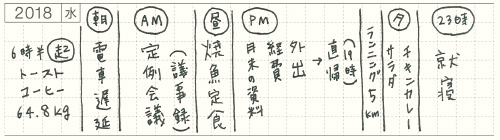 2018 水
朝
AM
昼
PM
夕
23時
6時半 起
トースト
コーヒー
64.8kg
電車遅延
定例会議
(議事録)
焼魚定食
外出→直帰(19時)
経費
月末の資料
ランニング5km
チキンカレー
サラダ
就寝